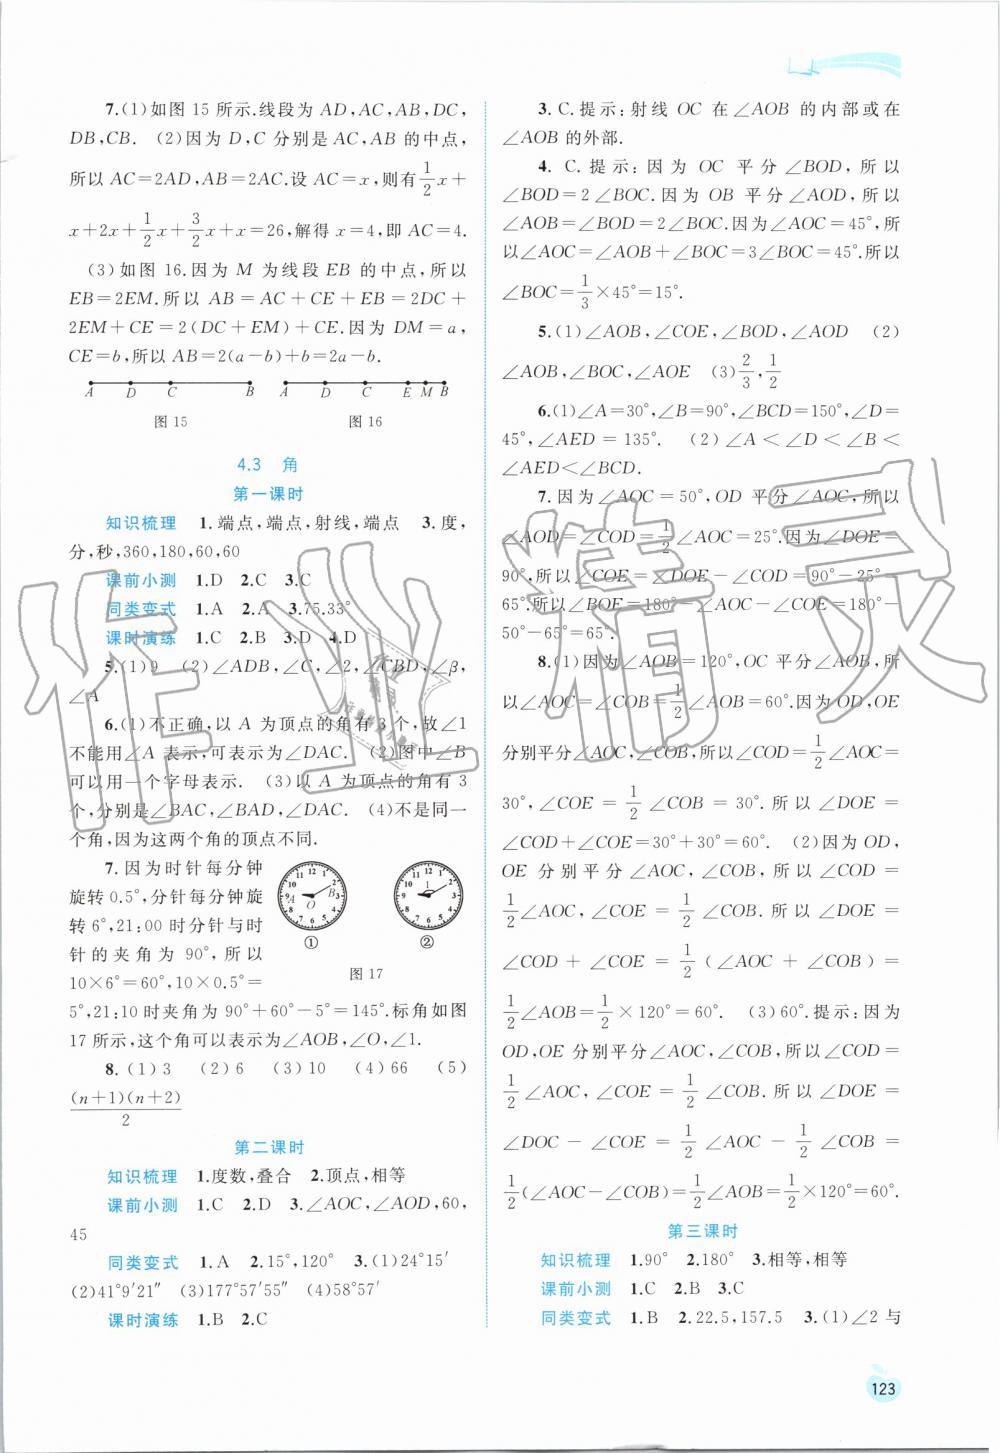 7.(1)如图 15 所示.线段为 AD,AC,AB,DC,
DB,CB. (2)因为 D,C 分别是 AC,AB 的中点,
所以 AC=2AD,AB=2AC.设 AC=x,则有1/2x+
x+2x+1/2x+3/2x+x=26,解得 x=4,即 AC=4.
(3)如图 16.因为 M 为线段 EB 的中点,所以
EB=2EM.所以 AB=AC+CE+EB=2DC+
2EM+CE=2(DC+EM)+CE.因为 DM=a,
CE=b,所以 AB=2(a-b)+b=2a-b.
A D C B
图 15
A D C E M B
图 16
4.3 角
第一课时
知识梳理 1.端点,端点,射线,端点 3.度,
分,秒,360,180,60,60
课前小测 1.D 2.C 3.C
同类变式 1.A 2.A 3.75.33°
课时演练 1.C 2.B 3.D 4.D
5.(1)9 (2)∠ADB,∠C,∠2,∠CBD,∠β,
∠A
6.(1)不正确,以 A 为顶点的角有 3 个,故∠1
不能用∠A 表示,可表示为∠DAC. (2)图中∠B
可以用一个字母表示. (3)以 A 为顶点的角有 3
个,分别是∠BAC,∠BAD,∠DAC. (4)不是同一
个角,因为这两个角的顶点不同.
7.因为时针每分钟
旋转 0.5°,分针每分钟旋
转 6°,21:00 时分针与时
针的夹角为 90°,所以
10×6°=60°,10×0.5°=
5°,21:10 时夹角为 90°+60°-5°=145°.标角如图
17 所示,这个角可以表示为∠AOB,∠O,∠1.
12 1 2 3 4 5 6 7 8 9 10 11
A O B
①
12 1 2 3 4 5 6 7 8 9 10 11
1
②
图 17
8.(1)3 (2)6 (3)10 (4)66 (5)
(n+1)(n+2)/2
第二课时
知识梳理 1.度数,叠合 2.顶点,相等
课前小测 1.C 2.D 3.∠AOC,∠AOD,60,
45
同类变式 1.A 2.15°,120° 3.(1)24°15′
(2)41°9′21″ (3)177°57′55″ (4)58°57′
课时演练 1.B 2.C
3. C.提示:射线 OC 在∠AOB 的内部或在
∠AOB 的外部.
4. C.提示:因为 OC 平分∠BOD,所以
∠BOD=2∠BOC.因为 OB 平分∠AOD,所以
∠AOB=∠BOD=2∠BOC.因为∠AOC=45°,所
以∠AOC=∠AOB+∠BOC=3∠BOC=45°.所以
∠BOC=1/3×45°=15°.
5.(1)∠AOB,∠COE,∠BOD,∠AOD (2)
∠AOB,∠BOC,∠AOE (3)2/3,1/2
6.(1)∠A=30°,∠B=90°,∠BCD=150°,∠D=
45°,∠AED=135°. (2)∠A<∠D<∠B<
∠AED<∠BCD.
7.因为∠AOC=50°,OD 平分∠AOC,所以
∠AOD=∠COD=1/2∠AOC=25°.因为∠DOE=
90°,所以∠COE=∠DOE-∠COD=90°-25°=
65°.所以∠BOE=180°-∠AOC-∠COE=180°-
50°-65°=65°.
8.(1)因为∠AOB=120°,OC 平分∠AOB,所
以∠AOC=∠COB=1/2∠AOB=60°.因为 OD,OE
分别平分∠AOC,∠COB,所以∠COD=1/2∠AOC=
30°,∠COE=1/2∠COB=30°.所以∠DOE=
∠COD+∠COE=30°+30°=60°. (2)因为 OD,
OE 分别平分∠AOC,∠COB,所以∠COD=
1/2∠AOC,∠COE=1/2∠COB.所以∠DOE=
∠COD+∠COE=1/2(∠AOC+∠COB)=
1/2∠AOB=1/2×120°=60°. (3)60°.提示:因为
OD,OE 分别平分∠AOC,∠COB,所以∠COD=
1/2∠AOC,∠COE=1/2∠COB.所以∠DOE=
∠DOC-∠COE=1/2∠AOC-1/2∠COB=
1/2(∠AOC-∠COB)=1/2∠AOB=1/2×120°=60°.
第三课时
知识梳理 1.90° 2.180° 3.相等,相等
课前小测 1.C 2.B 3.C
同类变式 1.B 2.22.5,157.5 3.(1)∠2 与
作业精灵
123